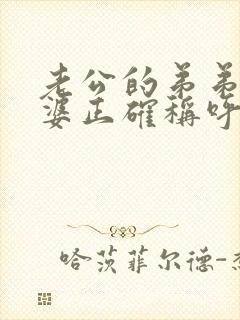 老公的弟弟
婆正確稱呼
哈茨菲尔德-杰